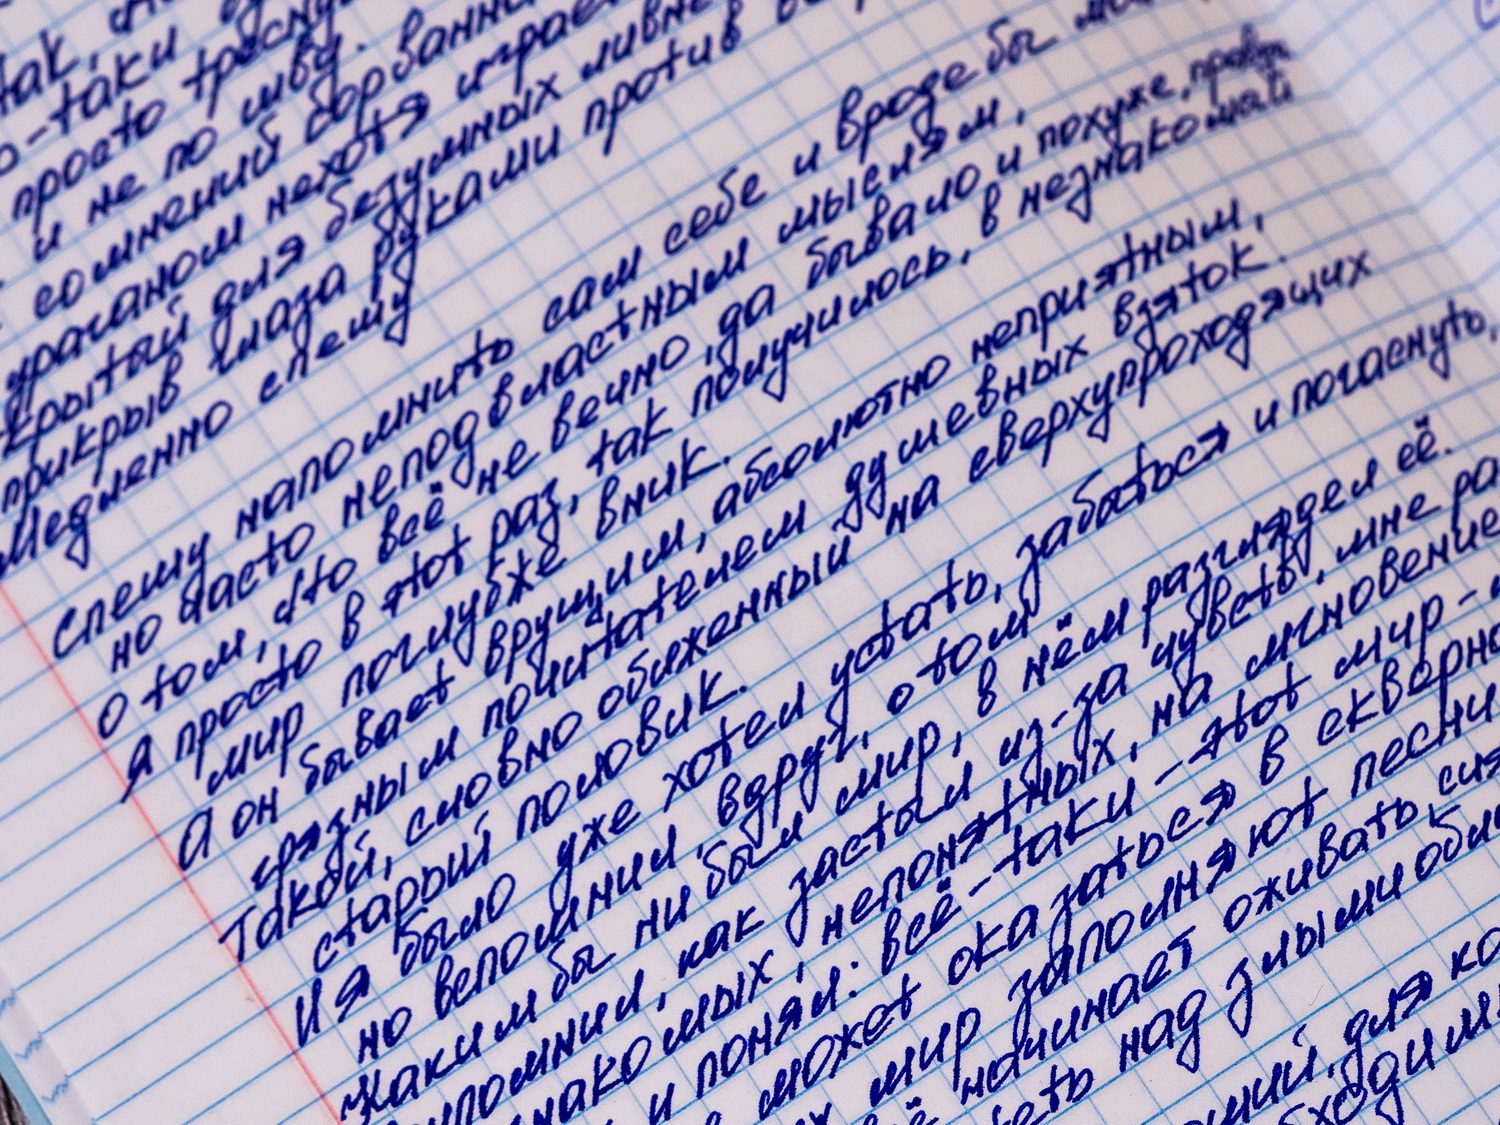 так,
-таки
просто
и не по шву.
сомнений
ураганом нехотя играе
крытый для безумных ливне
прикрыв глаза руками против
Медленно спешу
Спешу напомнить сам себе и вроде бы
но часто неподвластным мыслям,
о том, что всё не вечно, да бывало и похуже, правда
я просто в этот раз, так получилось, в незнакомый
мир поглубже вник.
А он бывает врущим, абсолютно неприятным,
грязным почитателем душевных взяток.
Такой, словно обиженный на сверхупроходящих
старый половик.
И я было уже хотел устать, забыться и погаснуть,
но вспомнил, вдруг, о том
Каким бы ни был мир, в нём разглядел её.
помнил, как застыл из-за чувств, мне ра
знакомых, непонятных, на мгновение
и понял: всё-таки - этот мир -
может оказаться в скверно
мир заполняют песни
начинает оживать, сия
над злыми обли
для ко